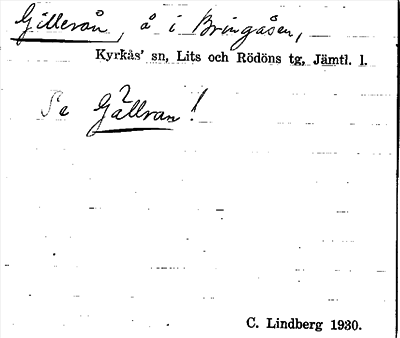 Gillerån, å i Bringåsen,
Kyrkås' sn, Lits och Rödöns tg, Jämtl. l.
Se Gällran!
C. Lindberg 1930.